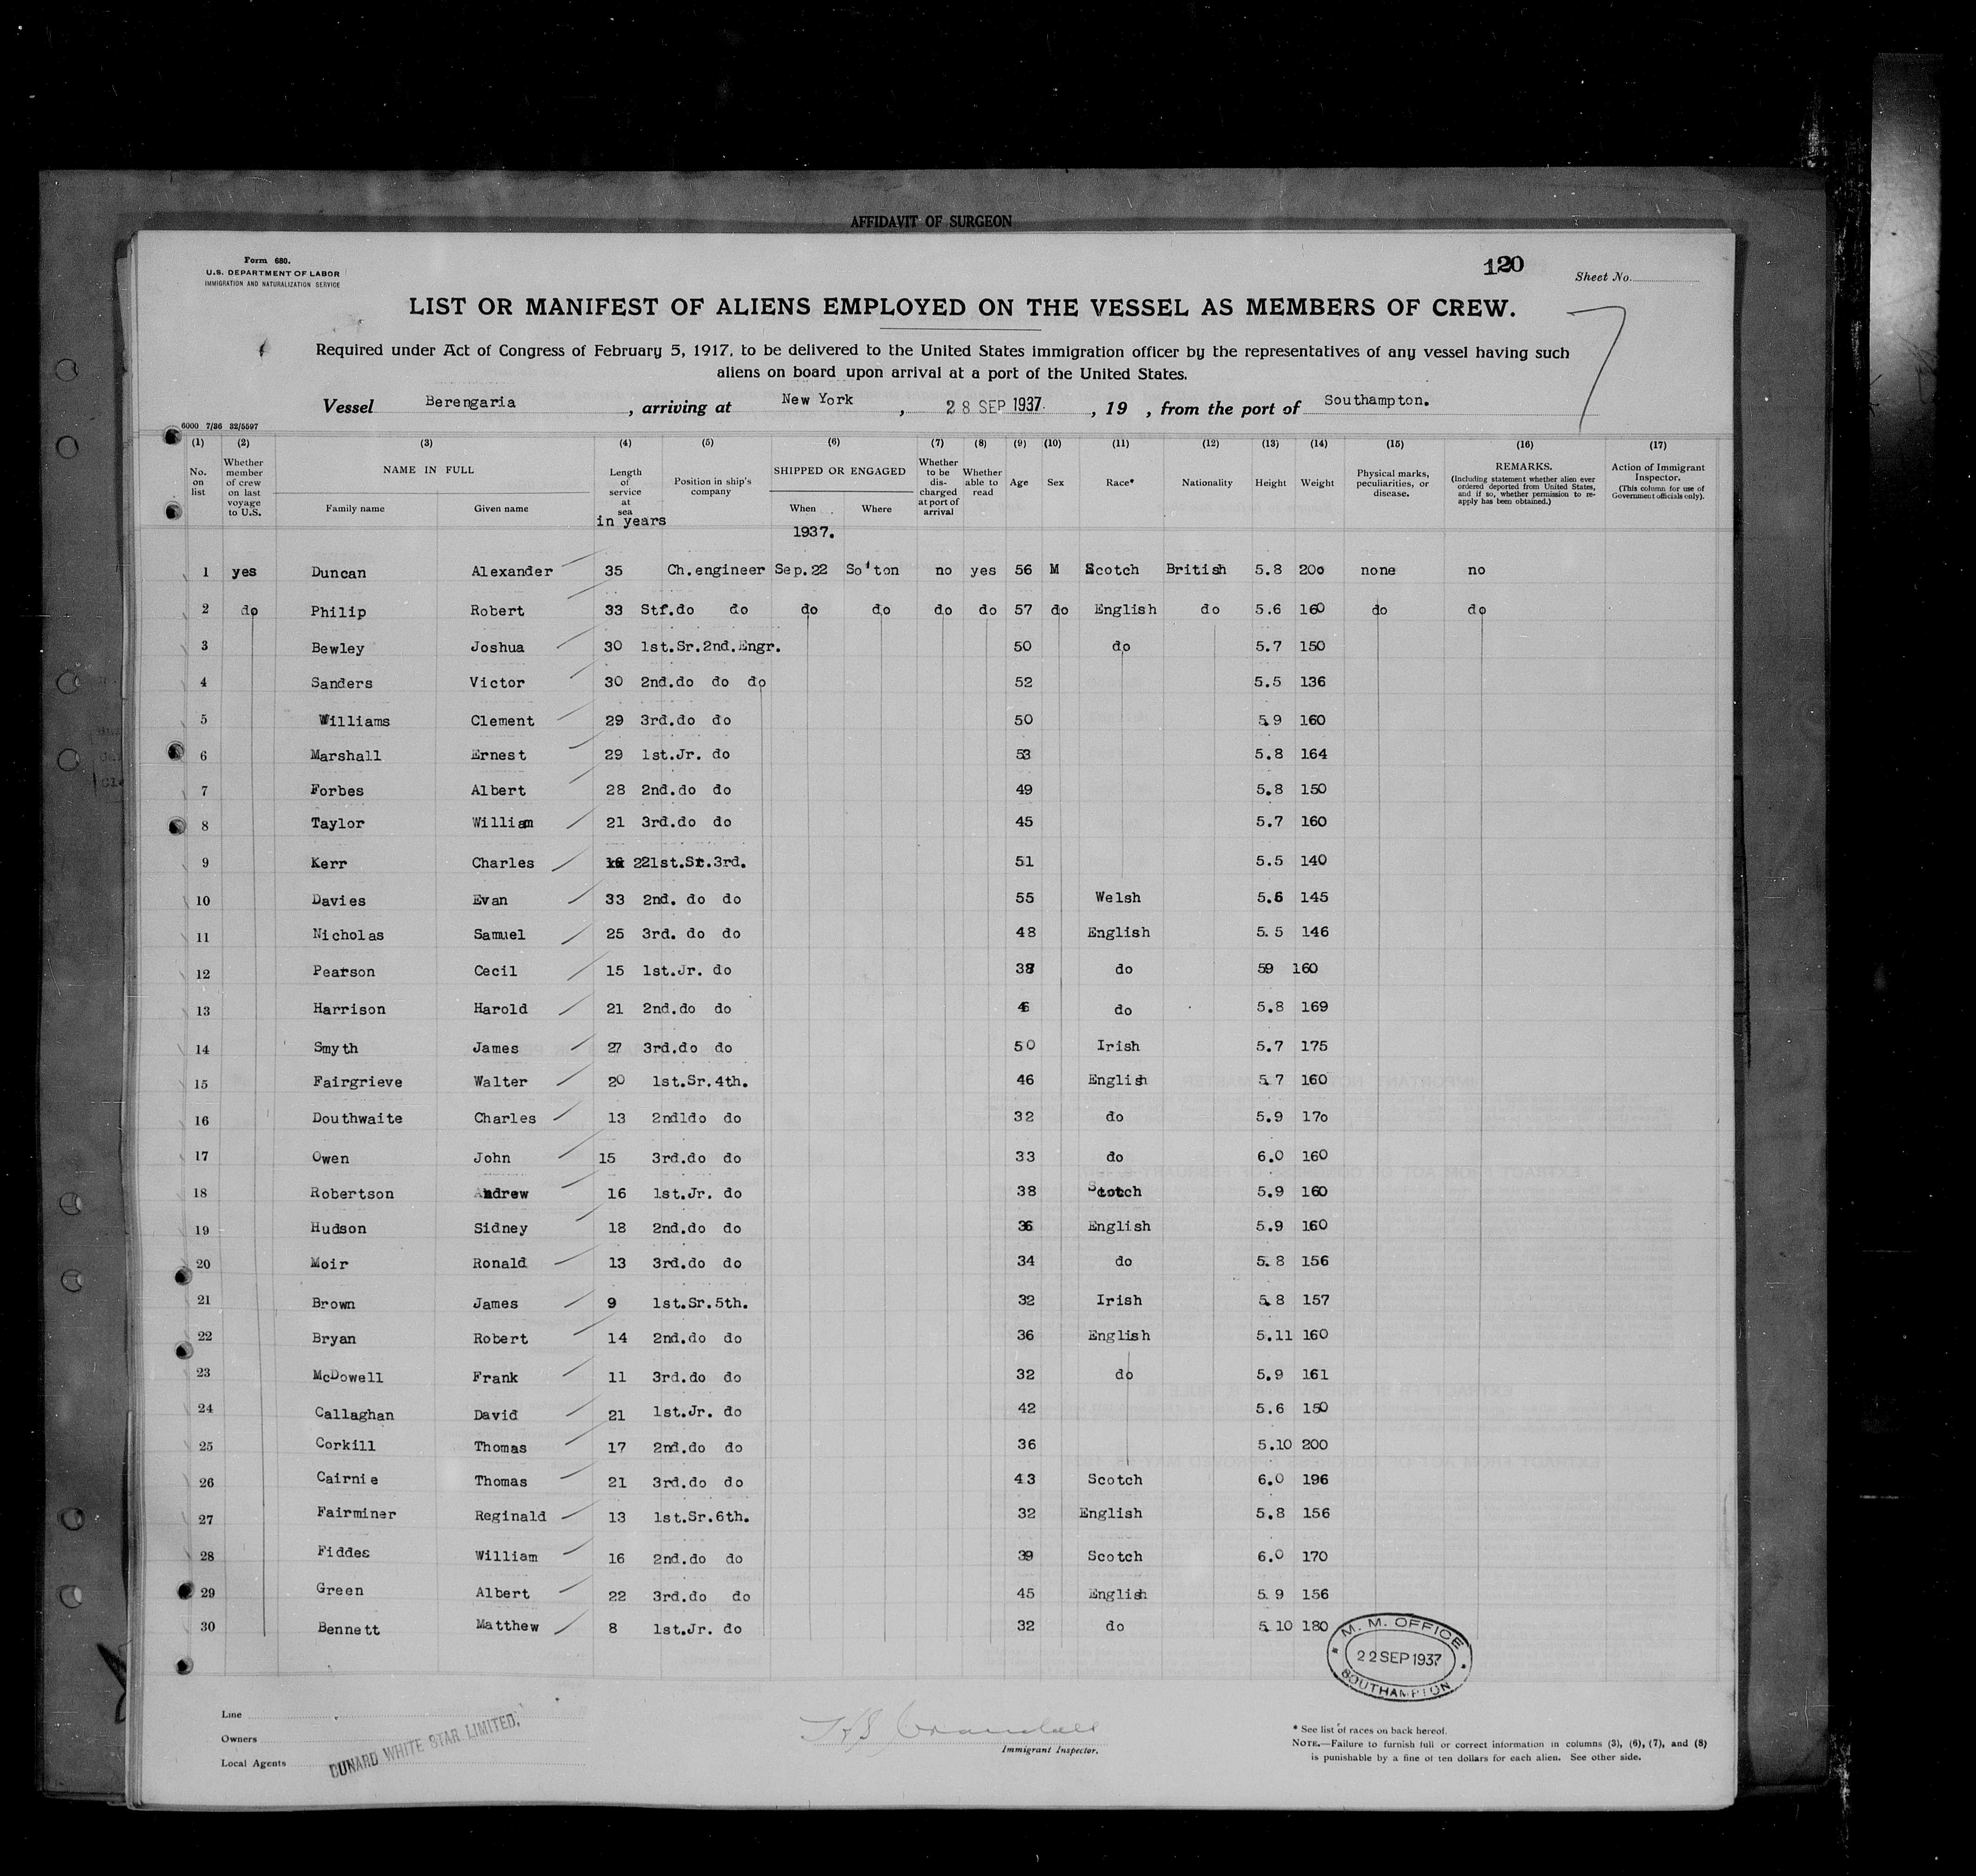 AFFIDAVIT OF SURGEON
Form 680.
U.S. DEPARTMENT OF LABOR
IMMIGRATION AND NATURALIZATION SERVICE
120
Sheet No.
7
LIST OR MANIFEST OF ALIENS EMPLOYED ON THE VESSEL AS MEMBERS OF CREW.
Required under Act of Congress of February 5, 1917, to be delivered to the United States immigration officer by the representatives of any vessel having such
aliens on board upon arrival at a port of the United States.
Vessel Berengaria , arriving at New York , 28 SEP 1937. , 19 , from the port of Southampton.
6000 7/36 32/5597
(1) (2) (3) (4) (5) (6) (7) (8) (9) (10) (11) (12) (13) (14) (15) (16) (17)
No. on list
Whether member of crew on last voyage to U.S.
NAME IN FULL
Family name Given name
Length of service at sea
in years
Position in ship's company
SHIPPED OR ENGAGED
When Where
1937.
Whether to be discharged at port of arrival
Whether able to read
Age Sex Race* Nationality Height Weight
Physical marks, peculiarities, or disease.
REMARKS.
(Including statement whether alien ever ordered deported from United States, and if so, whether permission to re-apply has been obtained.)
Action of Immigrant Inspector.
(This column for use of Government officials only).
1 yes Duncan Alexander 35 Ch.engineer Sep.22 So'ton no yes 56 M Scotch British 5.8 200 none no
2 do Philip Robert 33 Stf.do do do do do do 57 do English do 5.6 160 do do
3 Bewley Joshua 30 1st.Sr.2nd.Engr. 50 do 5.7 150
4 Sanders Victor 30 2nd.do do do 52 5.5 136
5 Williams Clement 29 3rd.do do 50 5.9 160
6 Marshall Ernest 29 1st.Jr. do 53 5.8 164
7 Forbes Albert 28 2nd.do do 49 5.8 150
8 Taylor William 21 3rd.do do 45 5.7 160
9 Kerr Charles 22 1st.Sr.3rd. 51 5.5 140
10 Davies Evan 33 2nd. do do 55 Welsh 5.6 145
11 Nicholas Samuel 25 3rd. do do 48 English 5.5 146
12 Pearson Cecil 15 1st.Jr. do do 59 160
13 Harrison Harold 21 2nd.do do do 5.8 169
14 Smyth James 27 3rd.do do 50 Irish 5.7 175
15 Fairgrieve Walter 20 1st.Sr.4th. 46 English 5.7 160
16 Douthwaite Charles 13 2ndldo do 32 do 5.9 170
17 Owen John 15 3rd.do do 33 do 6.0 160
18 Robertson Andrew 16 1st.Jr. do 38 Scotch 5.9 160
19 Hudson Sidney 18 2nd.do do 36 English 5.9 160
20 Moir Ronald 13 3rd.do do 34 do 5.8 156
21 Brown James 9 1st.Sr.5th. 32 Irish 5.8 157
22 Bryan Robert 14 2nd.do do 36 English 5.11 160
23 McDowell Frank 11 3rd.do do 32 do 5.9 161
24 Callaghan David 21 1st.Jr. do 42 5.6 150
25 Corkill Thomas 17 2nd.do do 36 5.10 200
26 Cairnie Thomas 21 3rd.do do 43 Scotch 6.0 196
27 Fairminer Reginald 13 1st.Sr.6th. 32 English 5.8 156
28 Fiddes William 16 2nd.do do 39 Scotch 6.0 170
29 Green Albert 22 3rd.do do 45 English 5.9 156
30 Bennett Matthew 8 1st.Jr. do 32 do 5.10 180
M. M. OFFICE
22 SEP 1937
SOUTHAMPTON
Line
Owners
Local Agents
CUNARD WHITE STAR LIMITED.
Immigrant Inspector.
* See list of races on back hereof.
NOTE.—Failure to furnish full or correct information in columns (3), (6), (7), and (8)
is punishable by a fine of ten dollars for each alien. See other side.